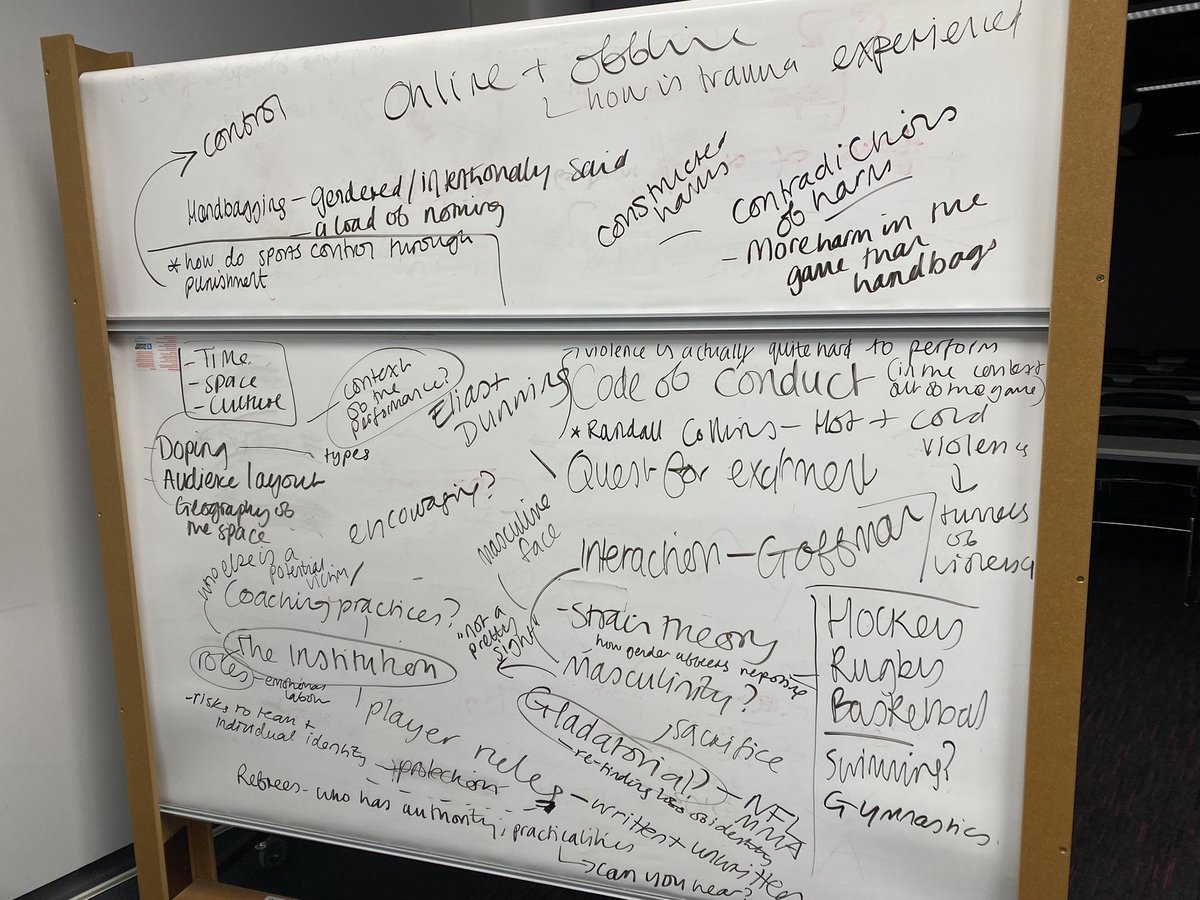 Online + offline
how is trauma experienced
control
Handbagging - gendered/intentionally said
- a load of nothing
* how do sports control through
punishment
constructed
harms
contradictions
of harm
- More harm in the
game than
handbags
- Time
- Space
- Culture
context
of the
performance?
Doping
types
Audience layout
Geography of
the space
Elias +
Dunning
violence is actually quite hard to perform
(in the context
out of the game)
Code of conduct
* Randall Collins - Hot + cold
violence
tunnels
of
violence
Quest for exctment
encouraging?
masculine
face
Interaction - Goffman
who else is a
potential
victim
Coaching practices?
- Strain theory
how gender affects reporting
"not a
pretty
sight"
Masculinity?
The Institution
roles
- emotional
labour
- risks to team +
individual identity
player rules - written + unwritten
protection
Gladatorial? - NFL
MMA
sacrifice
Refrees - who has authority, practicalities
can you hear?
Hockey
Rugby
Basketball
Swimming?
Gymnastics